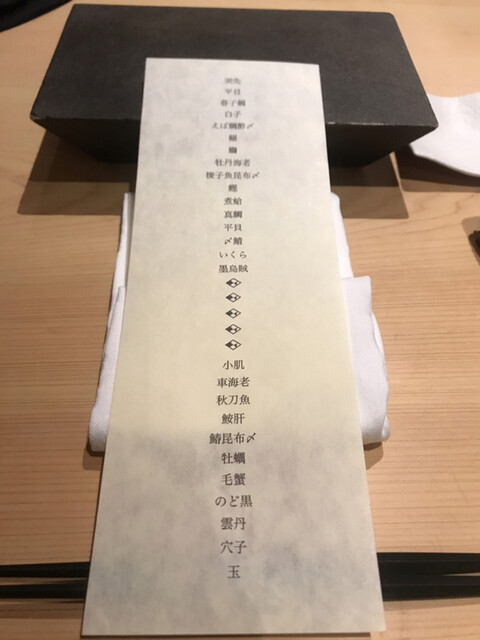 平目
春子鯛
白子
えぼ鯛酢〆
牡丹海老
梭子魚昆布〆
鰹
煮蛤
真鯛
平貝
〆鯖
いくら
墨烏賊
小肌
車海老
秋刀魚
鮟肝
鰆昆布〆
牡蠣
毛蟹
のど黒
雲丹
穴子
玉